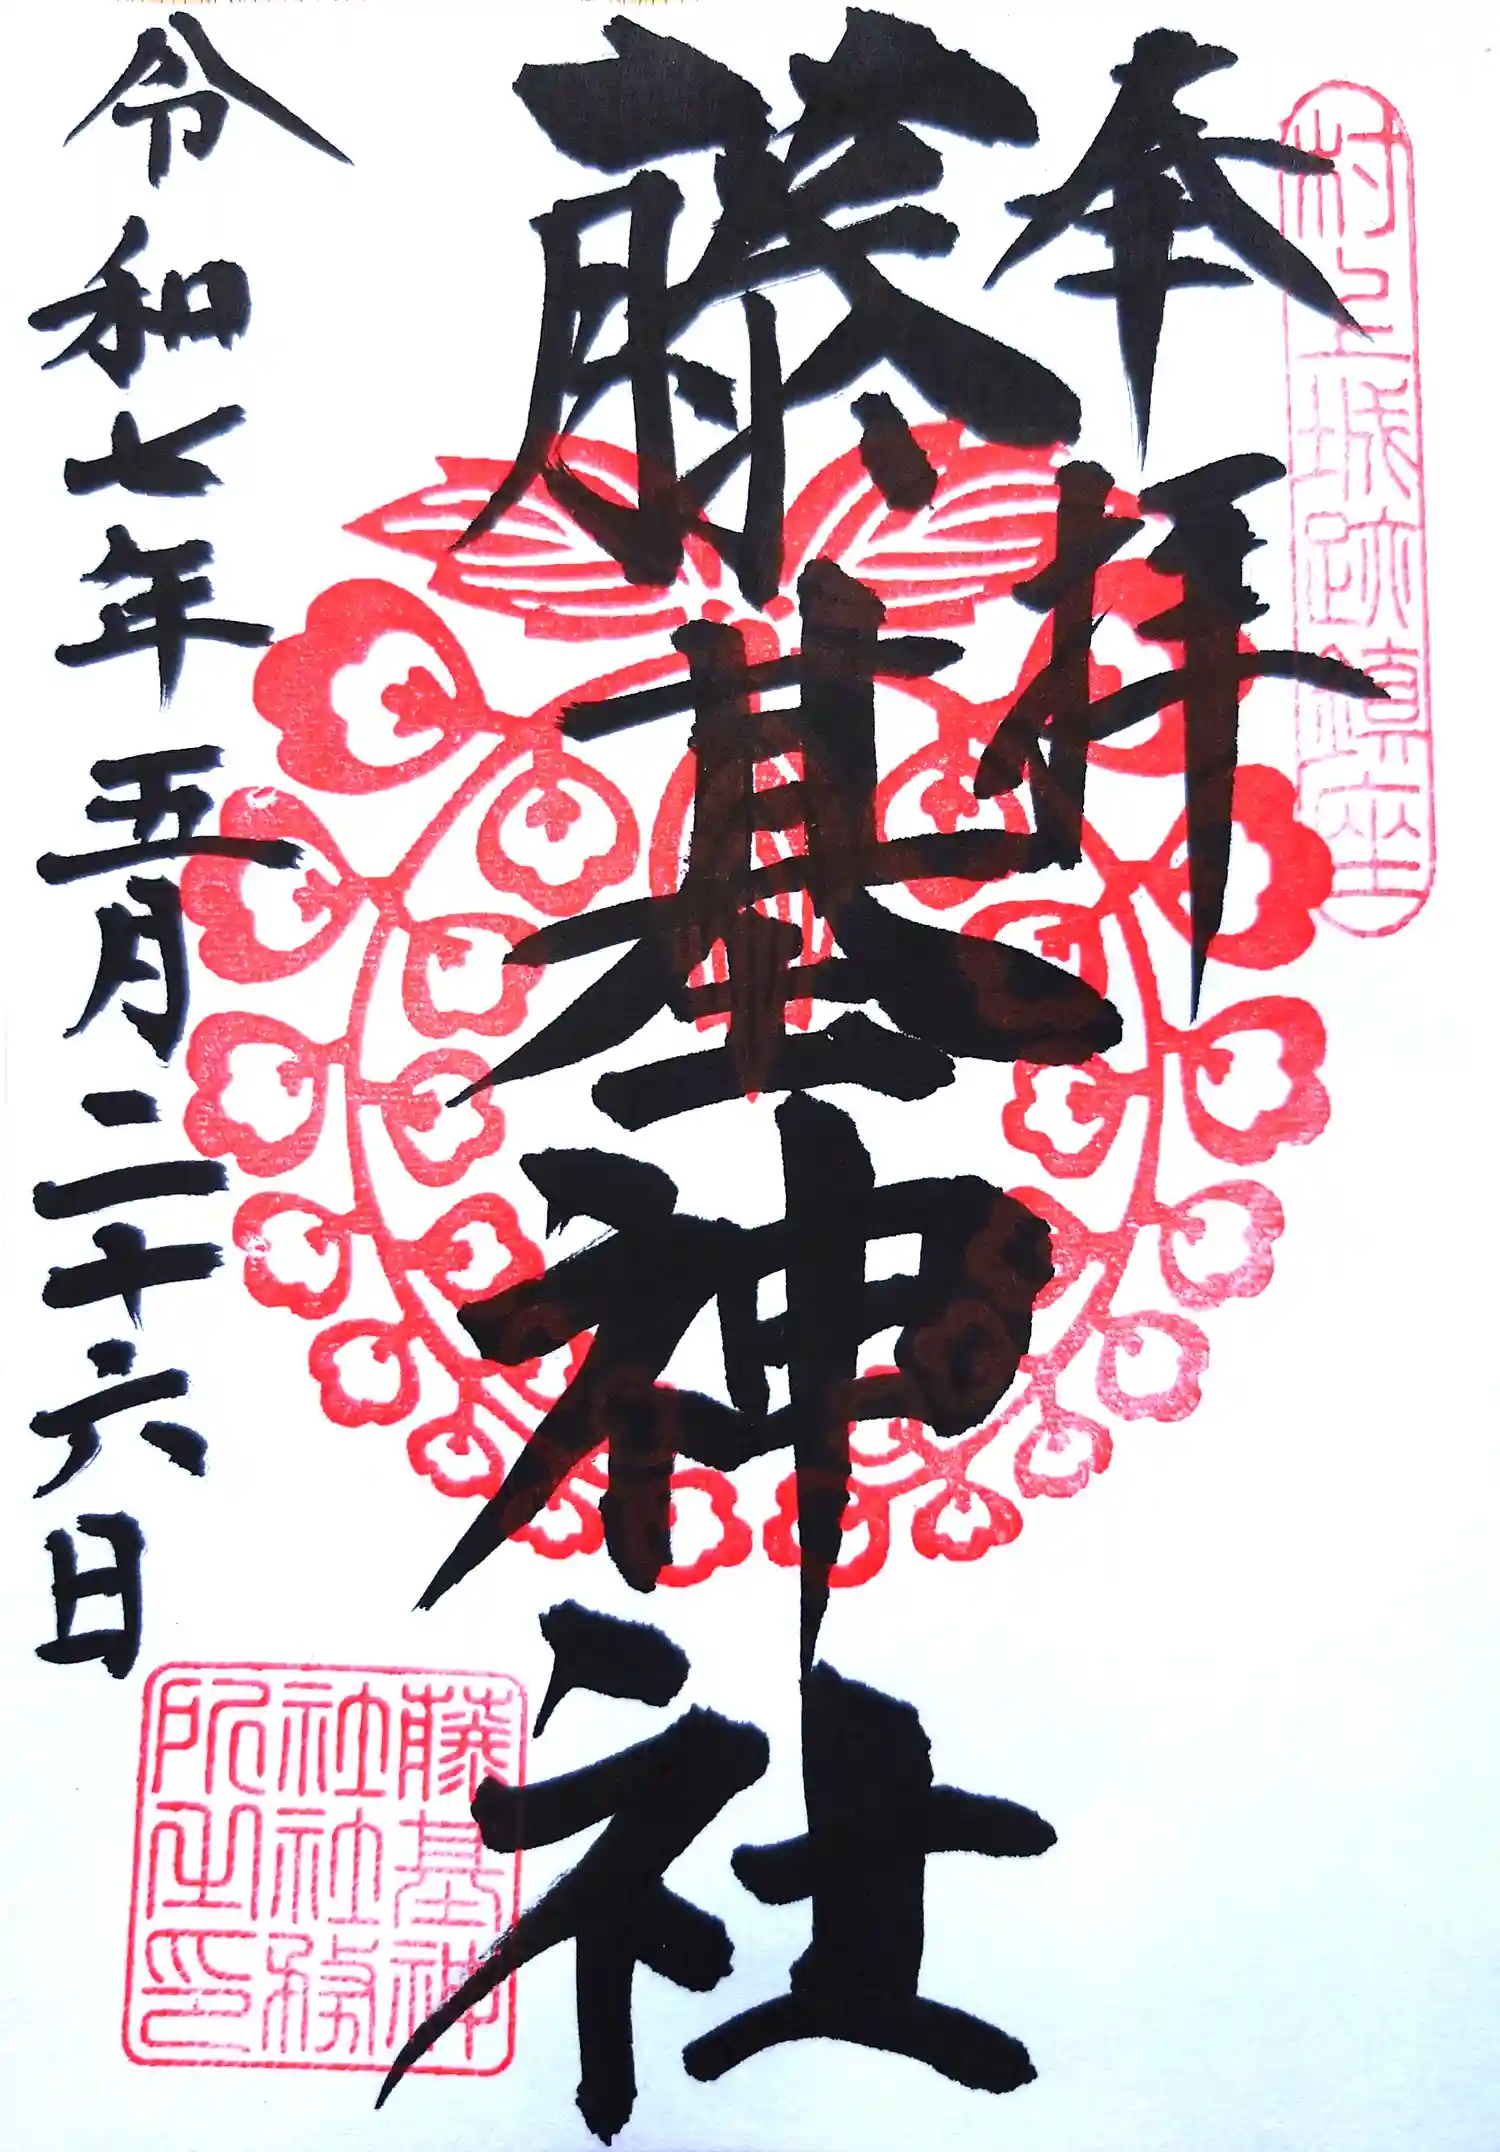 奉拝
村上城跡鎮座
藤基神社
令和七年五月二十六日
藤基神
社社務
所之印